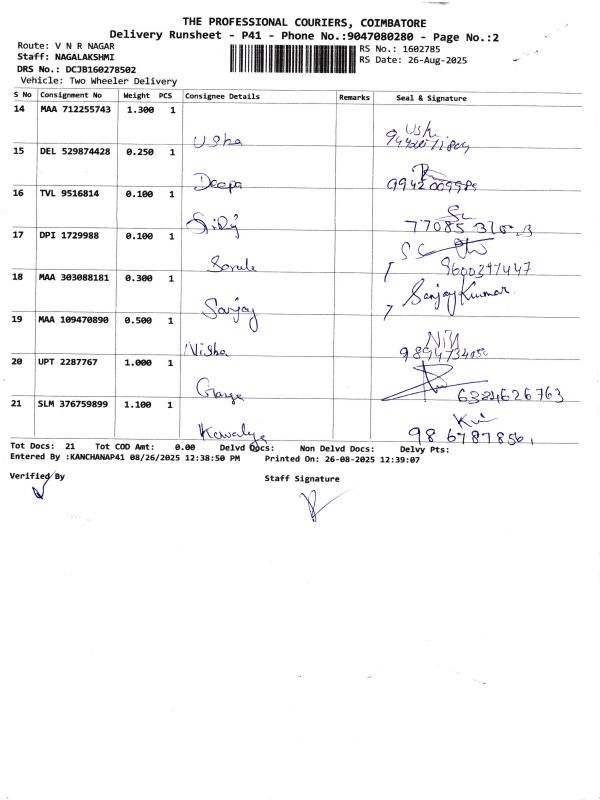 THE PROFESSIONAL COURIERS, COIMBATORE
Delivery Runsheet - P41 - Phone No.:9047080280 - Page No.:2
Route: V N R NAGAR
RS No.: 1602785
Staff: NAGALAKSHMI
RS Date: 26-Aug-2025
DRS No.: DCJB160278502
Vehicle: Two Wheeler Delivery
S No Consignment No Weight PCS Consignee Details Remarks Seal & Signature
14 MAA 712255743 1.300 1
Usha
15 DEL 529874428 0.250 1
Deepa
16 TVL 9516814 0.100 1
17 DPI 1729988 0.100 1
9600397447
18 MAA 303088181 0.300 1
Sanjay Sanjay Kumar
19 MAA 109470890 0.500 1
Nisha
20 UPT 2287767 1.000 1
6384626763
21 SLM 376759899 1.100 1
Tot Docs: 21 Tot COD Amt: 0.00 Delvd Docs: Non Delvd Docs: Delvy Pts:
Entered By :KANCHANAP41 08/26/2025 12:38:50 PM Printed On: 26-08-2025 12:39:07
Verified By
Staff Signature